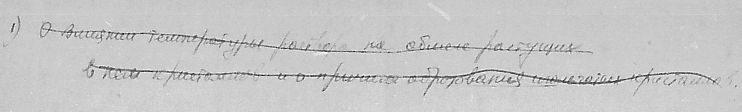 1) О влиянии температуры раствора на обмен растущих
в нем кристаллов и о причине образования игольчатых кристаллов.